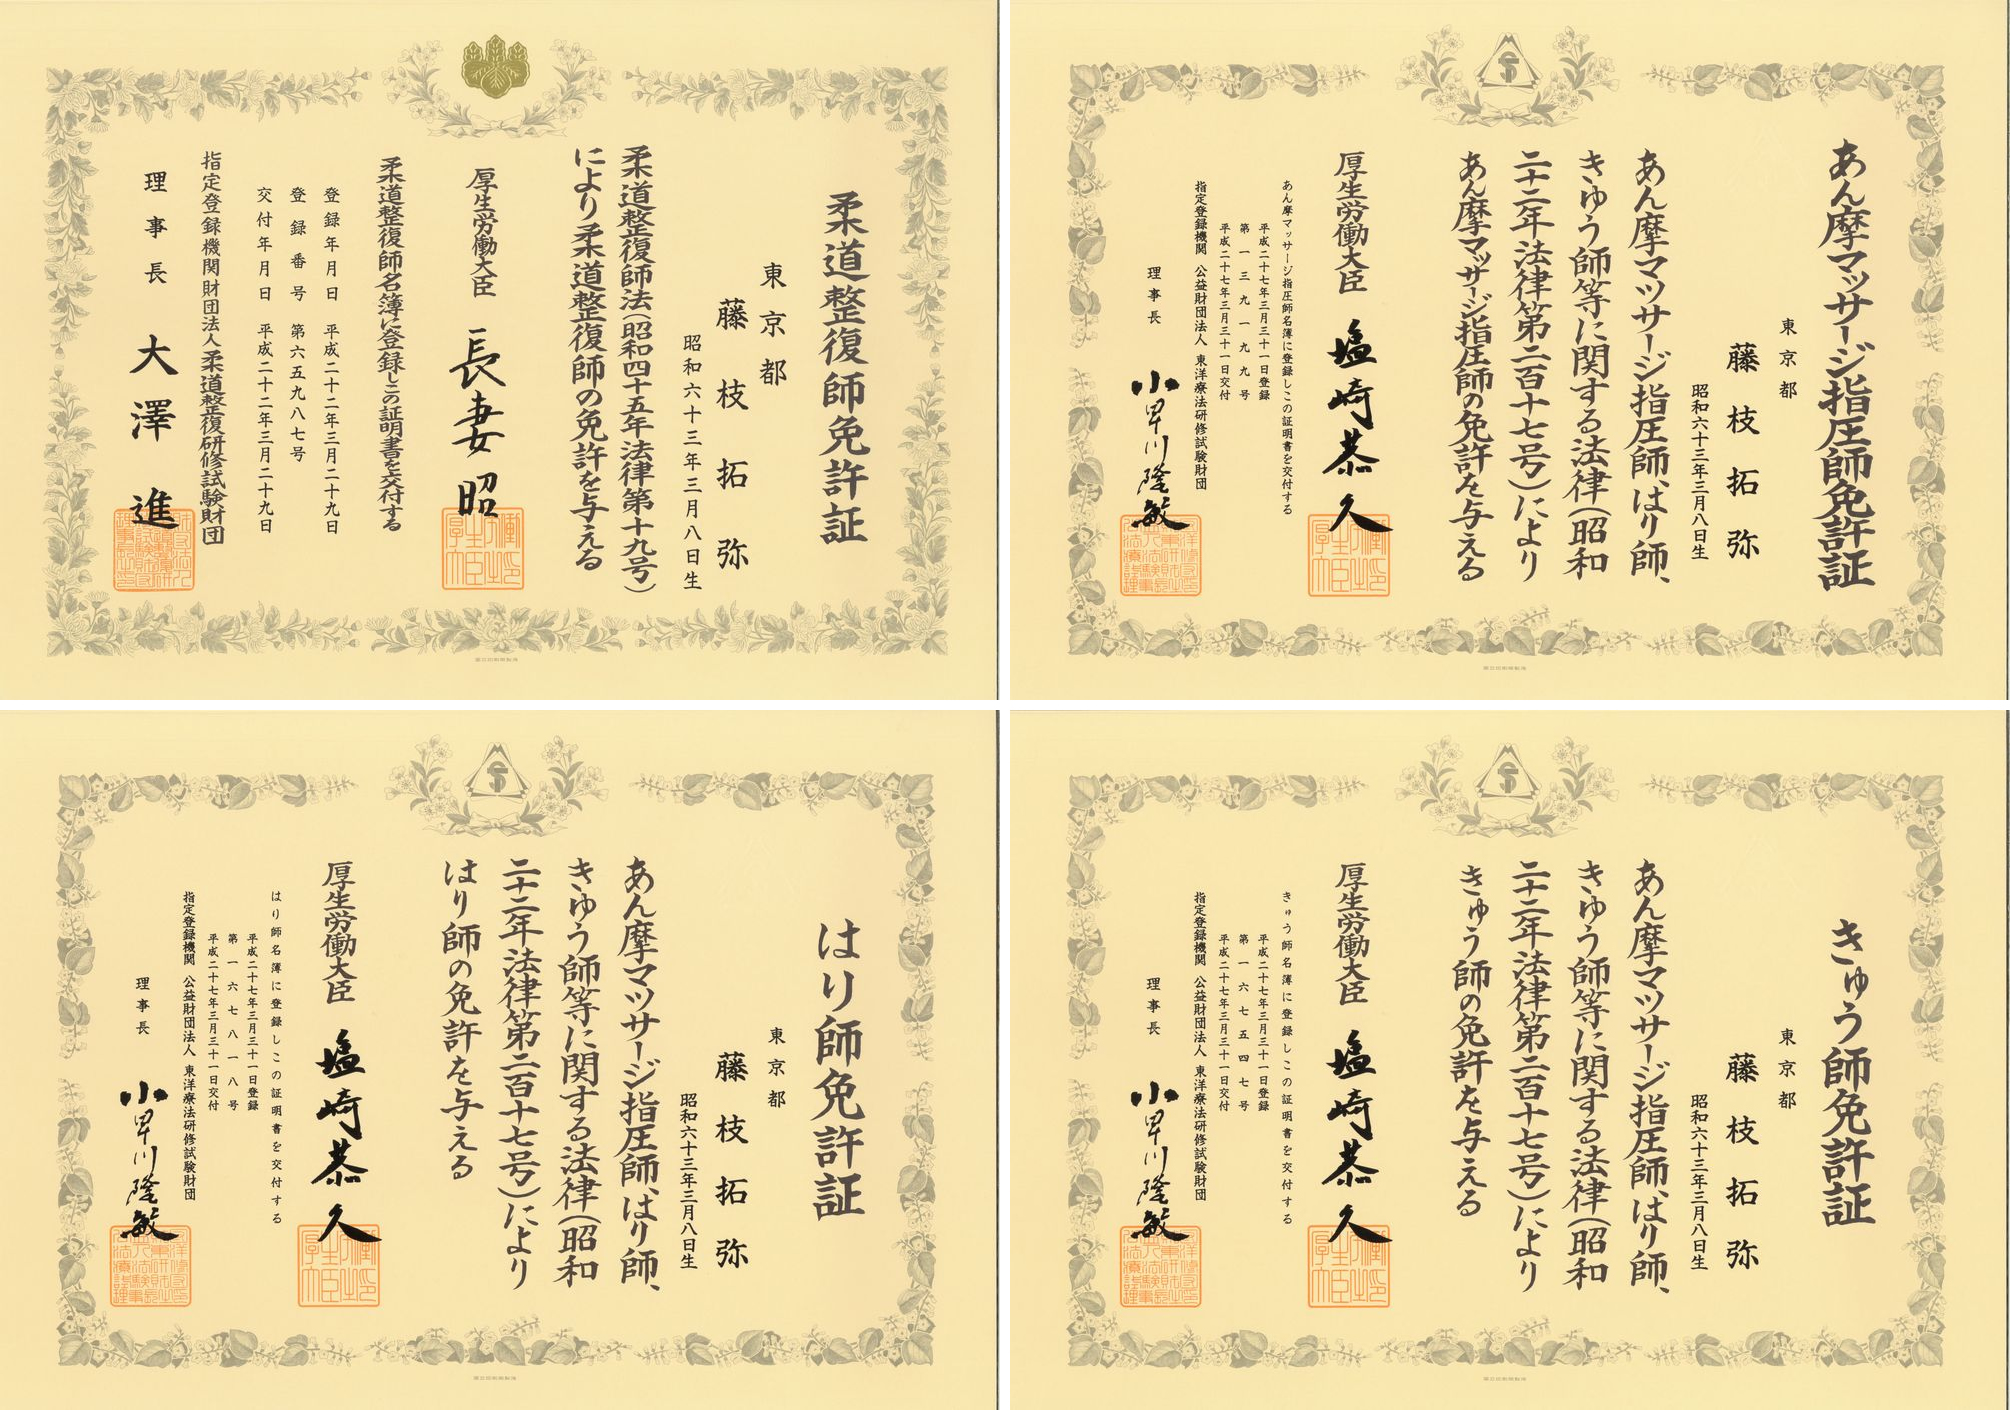 柔道整復師免許証
東京都
藤枝拓弥
昭和六十三年三月八日生
柔道整復師法(昭和四十五年法律第十九号)
により柔道整復師の免許を与える
厚生労働大臣 長妻昭
柔道整復師名簿に登録しこの証明書を交付する
登録年月日 平成二十二年三月二十九日
登録番号 第六五九八七号
交付年月日 平成二十二年三月二十九日
指定登録機関 財団法人 柔道整復研修試験財団
理事長 大澤進
あん摩マッサージ指圧師免許証
東京都
藤枝拓弥
昭和六十三年三月八日生
あん摩マツサージ指圧師、はり師、
きゆう師等に関する法律(昭和
二十二年法律第二百十七号)により
あん摩マッサージ指圧師の免許を与える
厚生労働大臣 塩崎恭久
あん摩マッサージ指圧師名簿に登録しこの証明書を交付する
平成二十七年三月三十一日登録
第一三九一九九号
平成二十七年三月三十一日交付
指定登録機関 公益財団法人 東洋療法研修試験財団
理事長 小早川隆敏
はり師免許証
東京都
藤枝拓弥
昭和六十三年三月八日生
あん摩マツサージ指圧師、はり師、
きゆう師等に関する法律(昭和
二十二年法律第二百十七号)により
はり師の免許を与える
厚生労働大臣 塩崎恭久
はり師名簿に登録しこの証明書を交付する
平成二十七年三月三十一日登録
第一六七八一八号
平成二十七年三月三十一日交付
指定登録機関 公益財団法人 東洋療法研修試験財団
理事長 小早川隆敏
きゅう師免許証
東京都
藤枝拓弥
昭和六十三年三月八日生
あん摩マツサージ指圧師、はり師、
きゆう師等に関する法律(昭和
二十二年法律第二百十七号)により
きゅう師の免許を与える
厚生労働大臣 塩崎恭久
きゅう師名簿に登録しこの証明書を交付する
平成二十七年三月三十一日登録
第一六七五四七号
平成二十七年三月三十一日交付
指定登録機関 公益財団法人 東洋療法研修試験財団
理事長 小早川隆敏